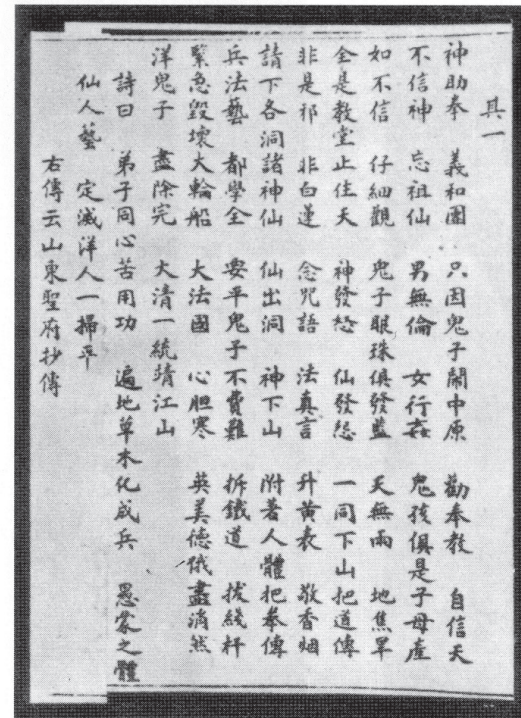 其一
神助拳　義和團　只因鬼子鬧中原　勸奉教　自信天
不信神　忘祖仙　男無倫　女行姦　鬼孩俱是子母產
如不信　仔細觀　鬼子眼珠俱發藍　天無雨　地焦旱
全是教堂止住天　神發怒　仙發怨　一同下山把道傳
非是邪　非白蓮　念咒語　法真言　升黃表　敬香烟
請下各洞諸神仙　仙出洞　神下山　附著人體把拳傳
兵法藝　都學全　要平鬼子不費難　拆鐵道　拔綫杆
緊急毀壞大輪船　大法國　心胆寒　英美德俄盡消然
洋鬼子　盡除完　大清一統靖江山
詩曰　弟子同心苦用功　遍地草木化成兵　愚蒙之體
仙人藝　定滅洋人一掃平
右傳云山東聖府抄傳